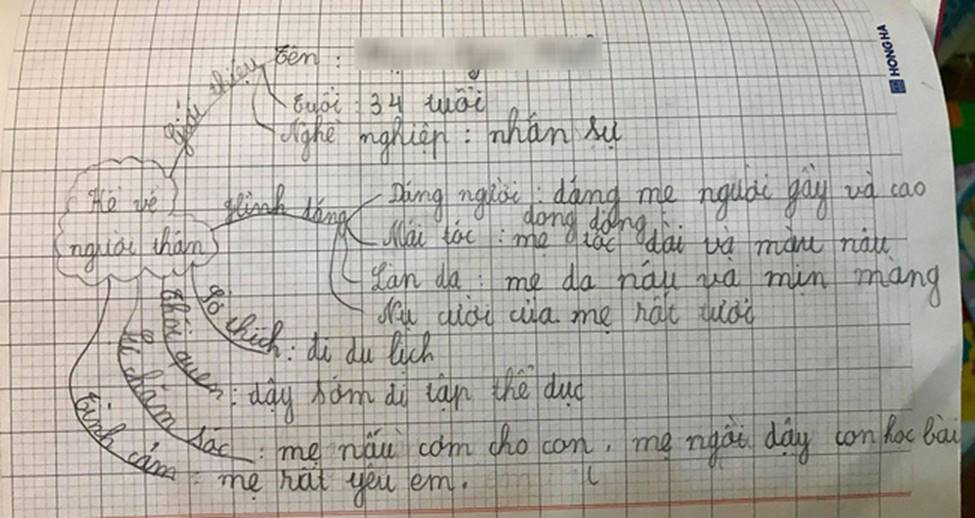 HONG HA
giới thiệu
tên :
tuổi : 34 tuổi
Nghề nghiệp : nhân sự
Kể về
người thân
Hình dáng
Dáng người : dáng mẹ người gầy và cao
dong dỏng
Mái tóc : mẹ tóc dài và màu nâu
Làn da : mẹ da nâu và mịn màng
Nụ cười của mẹ rất tươi
Sở thích : đi du lịch
thói quen : dậy sớm đi tập thể dục
chăm sóc : mẹ nấu cơm cho con. mẹ ngồi dậy con học bài
tình cảm : mẹ rất yêu em.